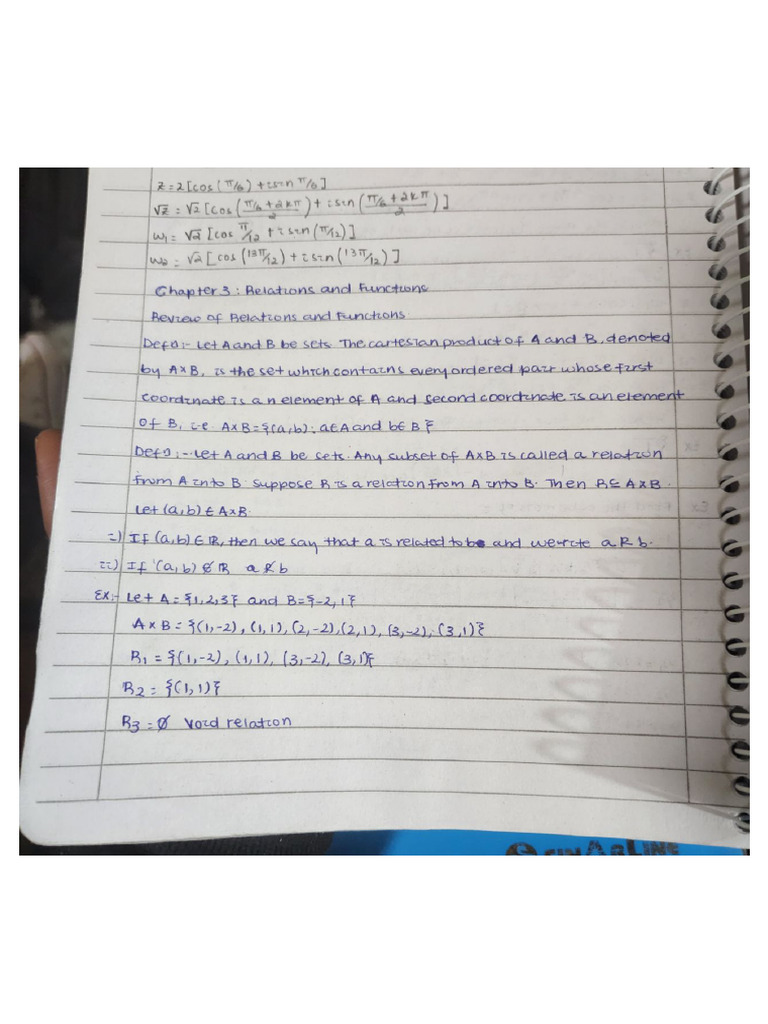 z = 2 [cos (π/6) + i sin π/6]
√z = √2 [cos (π/6 + 2kπ / 2) + i sin (π/6 + 2kπ / 2)]
w1 = √2 [cos π/12 + i sin (π/12)]
w2 = √2 [cos (13π/12) + i sin (13π/12)]
Chapter 3: Relations and Functions
Review of Relations and Functions
Defn:- Let A and B be sets. The cartesian product of A and B, denoted
by A×B, is the set which contains every ordered pair whose first
coordinate is an element of A and second coordinate is an element
of B, i.e A×B = {(a,b): a∈A and b∈B}
Defn:- Let A and B be sets. Any subset of A×B is called a relation
from A into B. Suppose R is a relation from A into B. Then R⊆A×B.
Let (a,b)∈A×B.
i) If (a,b)∈R, then we say that a is related to b and we write a R b.
ii) If (a,b)∉R a R̸ b
Ex:- Let A = {1,2,3} and B = {-2,1}
A×B = {(1,-2), (1,1), (2,-2), (2,1), (3,-2), (3,1)}
R1 = {(1,-2), (1,1), (3,-2), (3,1)}
R2 = {(1,1)}
R3 = ∅ Void relation
SINARLINE